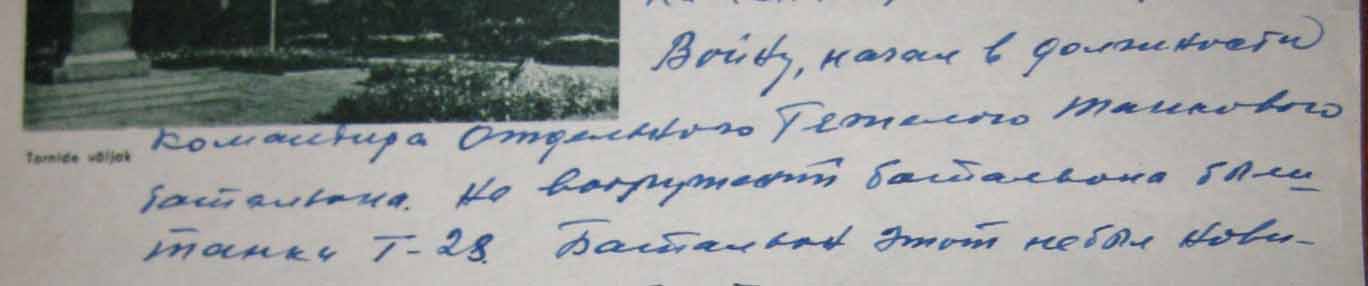 Войну, начал в должности
командира Отдельного Тяжелого танкового
Tornide väljak
батальона. На вооружении батальона были
танки Т-28. Батальон этот не был нови-